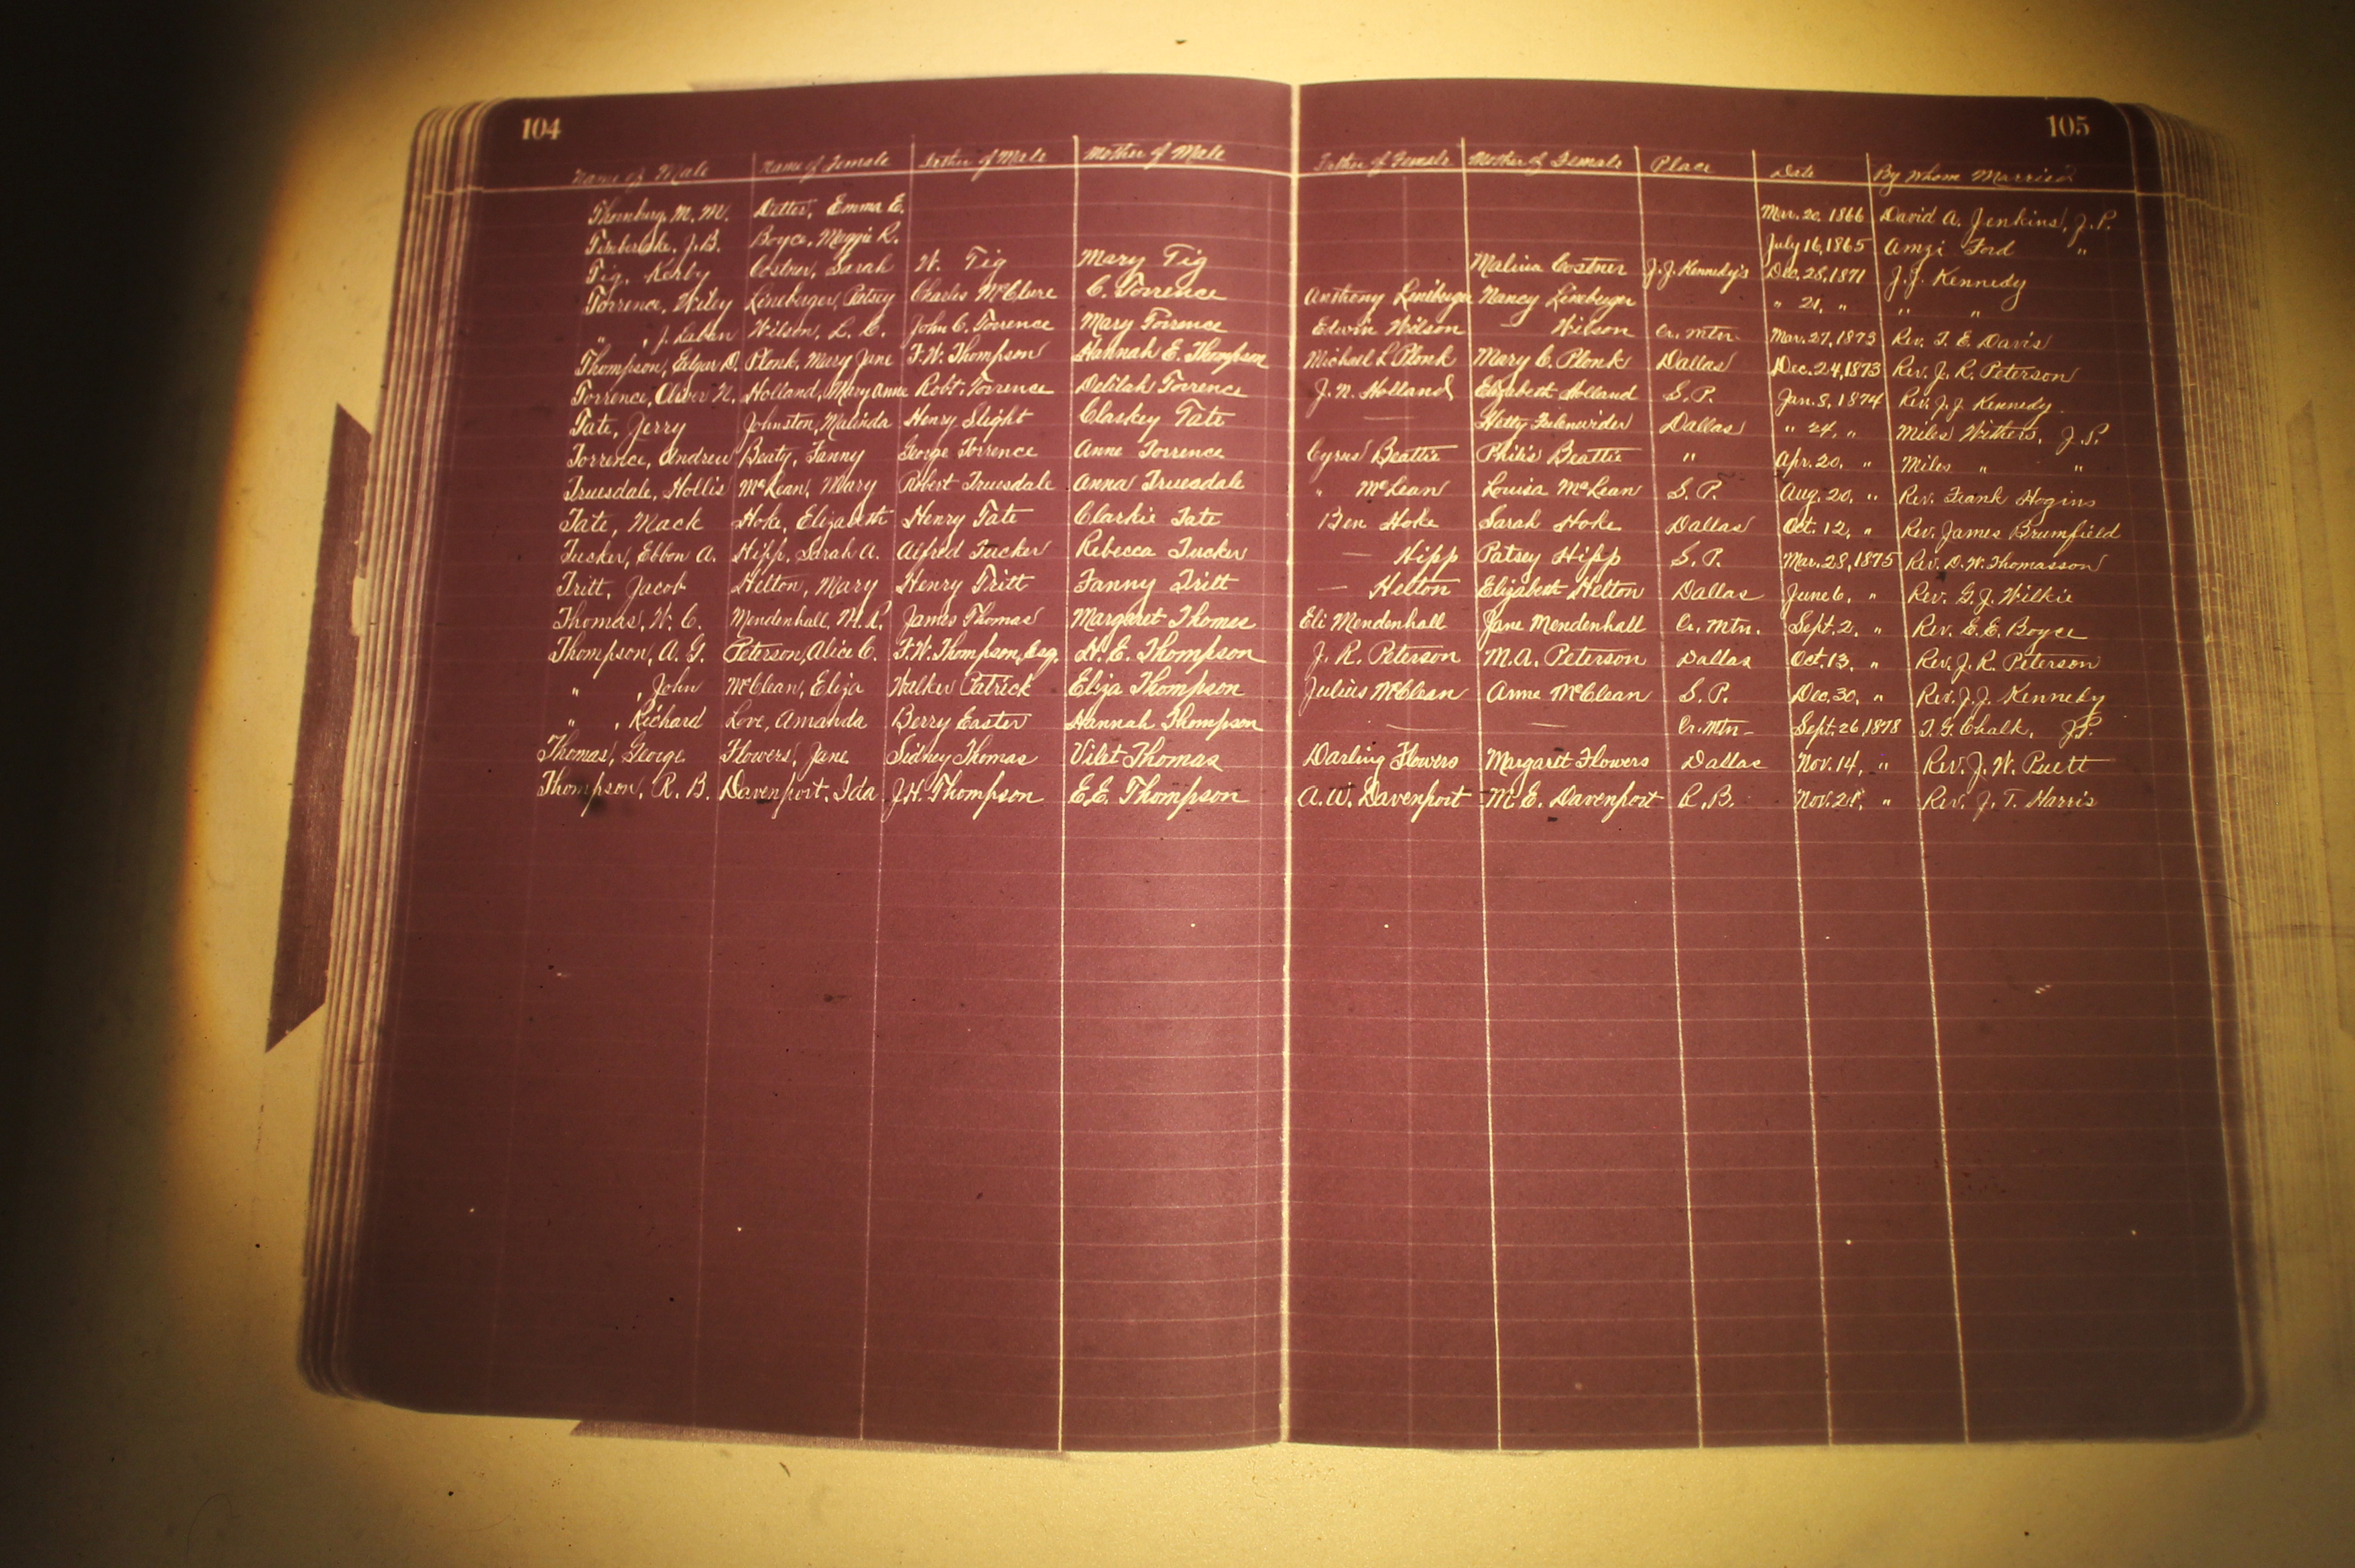 104 105
Name of Male Name of Female Father of Male Mother of Male Father of Female Mother of Female Place Date By Whom Married
Thornburg, M. M. Detter, Emma E. Mar. 20, 1866 David A. Jenkins, J. P.
Timberlake, J. B. Boyce, Maggie R. July 16, 1865 Amzi Ford "
Tig, Kerby Costner, Sarah W. Tig Mary Tig Malina Costner J. J. Kennedy's Dec. 28, 1871 J. J. Kennedy
Torrence, Wiley Lineberger, Patsey Charles McClure C. Torrence Anthony Lineberger Nancy Lineberger " 21, " " "
" , J. Laban Wilson, L. C. John C. Torrence Mary Torrence Edwin Wilson — Wilson Cr. Mtn. Mar. 27, 1873 Rev. T. E. Davis
Thompson, Edgar D. Plonk, Mary Jane F. W. Thompson Hannah E. Thompson Michael L Plonk Mary C. Plonk Dallas Dec. 24, 1873 Rev. J. R. Peterson
Torrence, Oliver N. Holland, Mary Anne Robt. Torrence Delilah Torrence J. N. Holland Elizabeth Holland S. P. Jan. 8, 1874 Rev. J. J. Kennedy.
Tate, Jerry Johnston, Malinda Henry Slight Claskey Tate — Hetty Fulenwider Dallas " 24, " Miles Withers, J. P.
Torrence, Andrew Beaty, Fanny George Torrence Anne Torrence Cyrus Beattie Philis Beattie " Apr. 20, " Miles " "
Truesdale, Hollis McLean, Mary Robert Truesdale Anna Truesdale " McLean Louisa McLean S. P. Aug. 20, " Rev. Frank Hogins
Tate, Mack Hoke, Elizabeth Henry Tate Clarkie Tate Ben Hoke Sarah Hoke Dallas Oct. 12, " Rev. James Brumfield
Tucker, Ebbon A. Hipp, Sarah A. Alfred Tucker Rebecca Tucker — Hipp Patsey Hipp S. P. Mar. 28, 1875 Rev. D. W. Thomasson
Tritt, Jacob Helton, Mary Henry Tritt Fanny Tritt — Helton Elizabeth Helton Dallas June 6, " Rev. G. J. Wilkie
Thomas, W. C. Mendenhall, M. R. James Thomas Margaret Thomas Eli Mendenhall Jane Mendenhall Cr. Mtn. Sept. 2, " Rev. E. E. Boyce
Thompson, A. G. Peterson, Alice C. F. W. Thompson, Esq. H. E. Thompson J. R. Peterson M. A. Peterson Dallas Oct. 13, " Rev. J. R. Peterson
" , John McClean, Eliza Walker Patrick Eliza Thompson Julius McClean Anne McClean S. P. Dec. 30, " Rev. J. J. Kennedy
" , Richard Love, Amanda Berry Easter Hannah Thompson — — Cr. Mtn — Sept. 26 1878 T. G. Chalk, J P.
Thomas, George Flowers, Jane Sidney Thomas Vilet Thomas Darling Flowers Margaret Flowers Dallas Nov. 14, " Rev. J. W. Puett
Thompson, R. B. Davenport, Ida J. H. Thompson E E. Thompson A. W. Davenport M. E. Davenport R. B. Nov. 21, " Rev. J. T. Harris